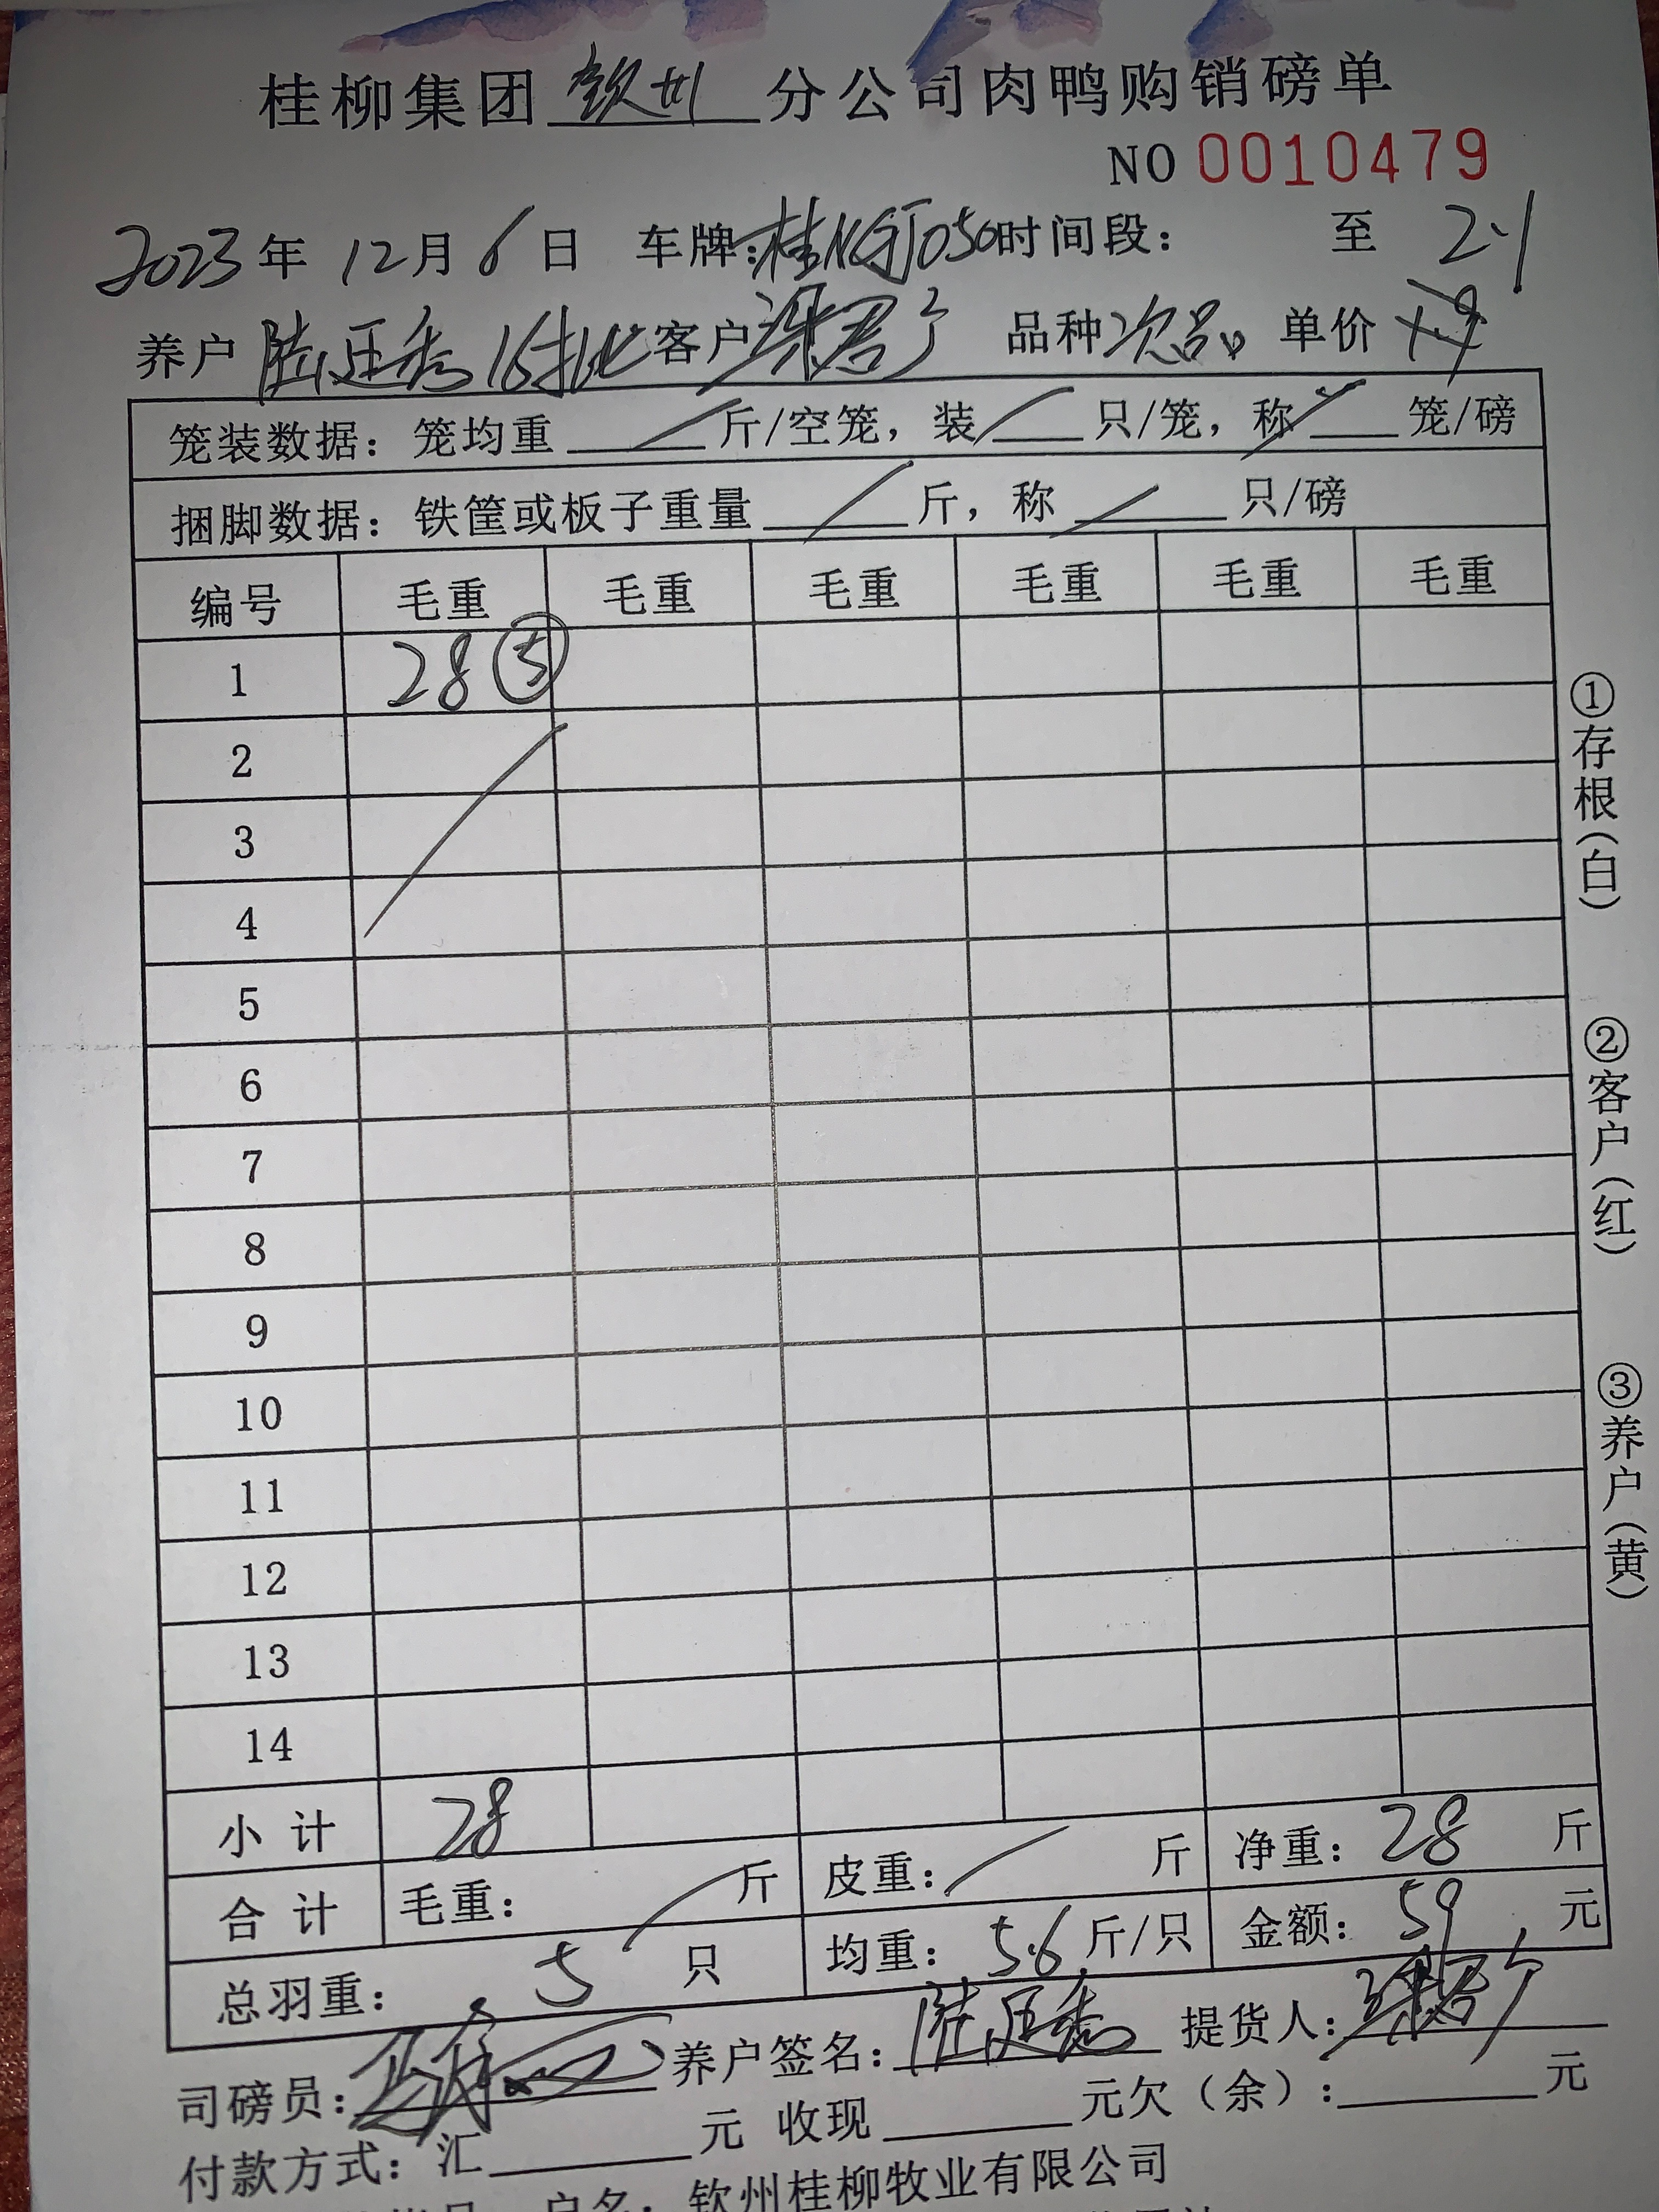 桂柳集团钦州分公司肉鸭购销磅单
NO 0010479
2023年12月6日 车牌:桂 050时间段: 至 2.1
养户 陆廷秀 16批 客户 品种 次品 单价
笼装数据:笼均重 斤/空笼,装 只/笼,称 笼/磅
捆脚数据:铁筐或板子重量 斤,称 只/磅
编号 毛重 毛重 毛重 毛重 毛重 毛重
1 28 ⑤
2
3
4
5
6
7
8
9
10
11
12
13
14
小计 28
合计 毛重: 斤 皮重: 斤 净重: 28 斤
总羽重: 5 只 均重: 5.6 斤/只 金额: 59 元
司磅员: 养户签名: 陆廷秀 提货人:
付款方式:汇 元 收现 元欠(余): 元
户名:钦州桂柳牧业有限公司
①存根(白)
②客户(红)
③养户(黄)